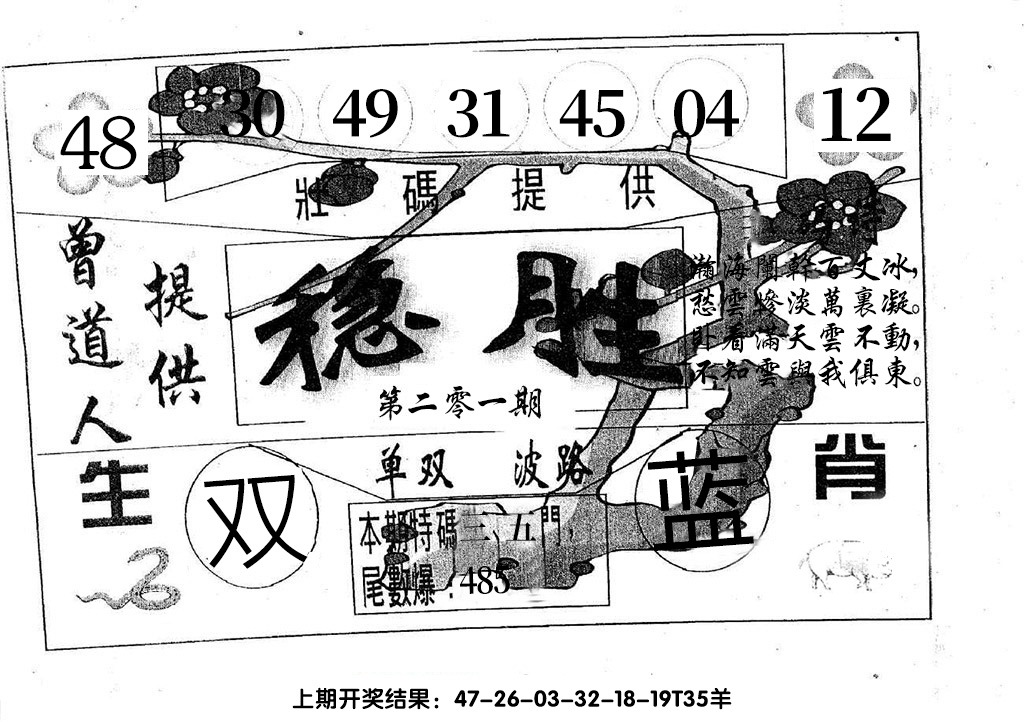 48 30 49 31 45 04 12
壯碼提供
曾道人
提供
稳胜
第二零一期
特
瀚海闌幹百丈冰，
愁雲慘淡萬裏凝。
卧看滿天雲不動，
不知雲與我俱東。
生肖
单双 波路
双
蓝
本期特碼三、五門，
尾數爆：485
上期开奖结果：47-26-03-32-18-19T35羊